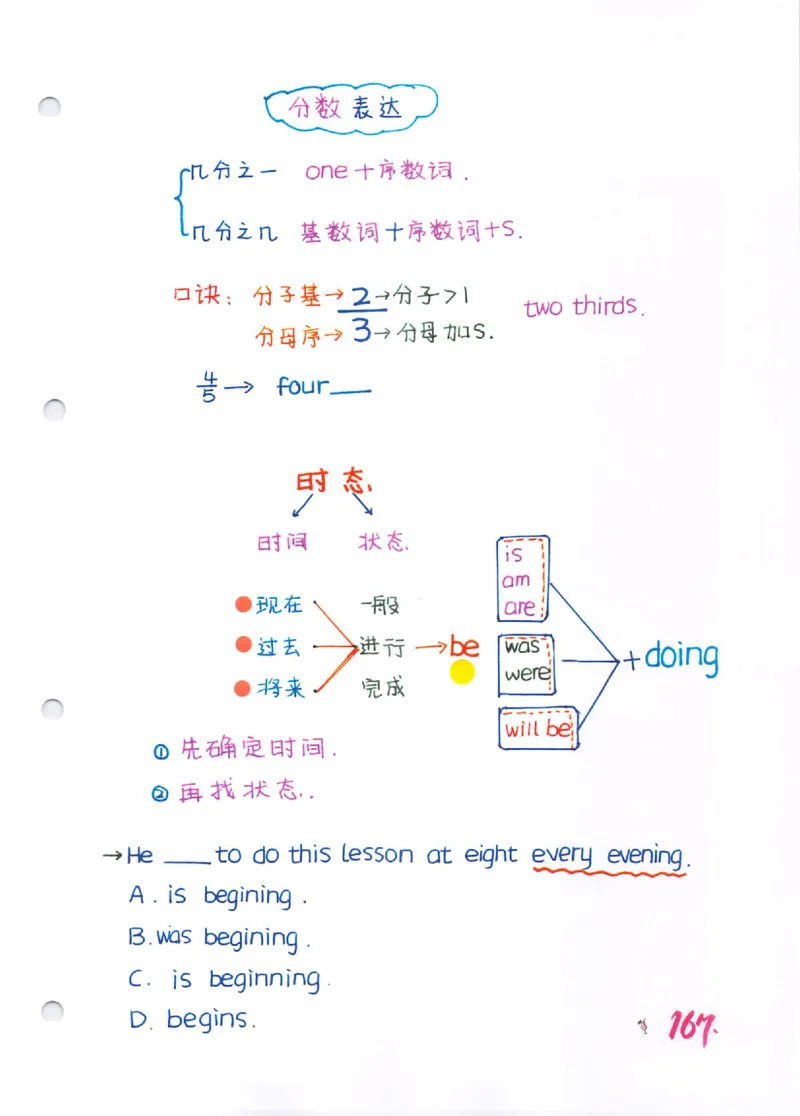 分数表达
几分之一 one+序数词.
几分之几 基数词+序数词+S.
口诀: 分子基→2→分子>1 two thirds.
分母序→3→分母加S.
4/5→ four___
时态.
时间 状态.
is
am
are
现在 一般
过去 进行→be was +doing
将来 完成 were
will be
① 先确定时间.
② 再找状态..
→He ___ to do this lesson at eight every evening.
A. is begining.
B. was begining.
C. is beginning.
D. begins.
167.